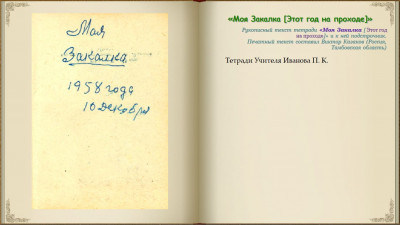 Моя
Закалка
1958 года
10 декабря
«Моя Закалка [Этот год на проходе]»
Рукописный текст тетради «Моя Закалка [Этот год
на проходе]» и к ней подстрочник.
Печатный текст составил Виктор Казаков (Россия,
Тамбовская область)
Тетради Учителя Иванова П. К.